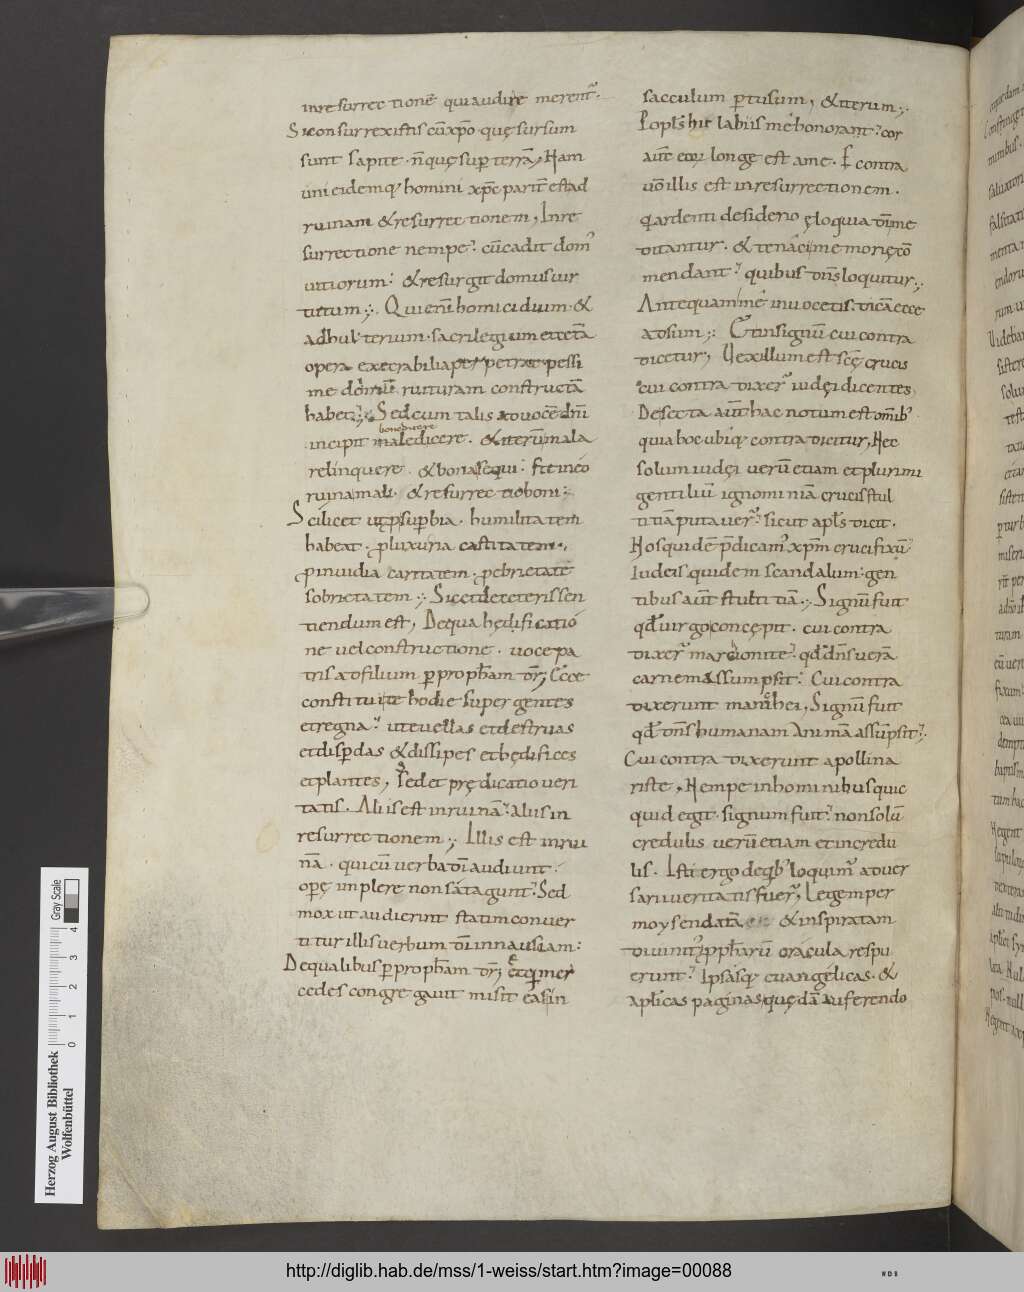 inresurrectionē qui audire merent̄.
Siconsurrexistis cū xp̄o quę sursum
sunt sapite. n̄ quę sup terrā, Nam
uni eidemq; homini xp̄c parit̄ est ad
ruinam &resurrectionem, Inre
surrectione nempe. cū cadit dom'
uitiorum: &resurgit domus uir
tutum; Qui enī homicidium. &
adhulterium. sacrilegium et cetā
opera execrabilia per petrat pessi
me domū ruituram constructā
habet; Sed cum talis ad uocē dn̄i
benedicere
incipit maledicere. &iterū mala
relinquere. &bona sequi: fit in eo
ruina mali. &resurrectio boni;
Scilicet ut p̄ supbia. humilitatem
habeat. p luxuria castitatem.
p inuidia caritatem. p ebrietate
sobrietatem; Sic et de ceteris sen
tiendum est, Dequa hędificatio
ne uel constructione. uoce pa
tris ad filium p propħam dr̄; Ecce
constitui te hodie super gentes
et regna. ut euellas et destruas
et disp̄das &dissipes et hędifices
et plantes, Sed et prędicatio ueri
tatis. Aliis est in ruinā. aliis in
resurrectionem; Illis est in rui
nā. qui cū uerba dī audiunt.
opę implere non satagunt. Sed
mox ut audierint statim conuer
titur illis uerbum dī in nausiam:
Dequalibus p propħam dr̄; et qui mer
cedes congregauit misit eas in
sacculum ptusum, &iterum;
Popl̄s hic labiis me honorant. cor
aut̄ eoꝝ longe est a me. E contra
uō illis est in resurrectionem.
q ardenti desiderio ęloquia dī me
ditantur. & tenaci memorię cō
mendant. quibus dn̄s loquitur;
Antequam me inuocetis. dicā ecce
adsum; Et in signū cui contra
dicetur, Uexillum est scę crucis
cui contra dixer' iudęi dicentes
De secta aut̄ hac notum est omib'
quia hoc ubiq; contra dicitur, Nec
solum iudęi uerū etiam et plurimi
gentiliū ignominiā crucis stul
titiā putauer'. sicut apl̄s dicit.
Nos quidē p̄dicam' xp̄m crucifixū
Iudeis quidem scandalum: gen
tibus aut̄ stultitiā; Signū fuit
qđ uirgo concępit. cui contra
dixer' marcionite. qđ dn̄s uerā
carnem assumpsit. Cui contra
dixerunt manichei, Signū fuit
qđ dn̄s humanam animā assūpsit;
Cui contra dixerunt apollina
riste, Nempe in hominibus quic
quid egit. signum fuit. non solū
credulis uerū etiam et incredu
lis. Isti ergo de qb' loquim' aduer
sarii ueritatis fuer', Legem per
moysen datā &inspiratam
diuinit' ppħarū oracula respu
erunt. Ipsasq; euangelicas. &
aplicas paginas quędā auferendo
Herzog August Bibliothek
Wolfenbüttel
0 1 2 3 4
Gray Scale
http://diglib.hab.de/mss/1-weiss/start.htm?image=00088